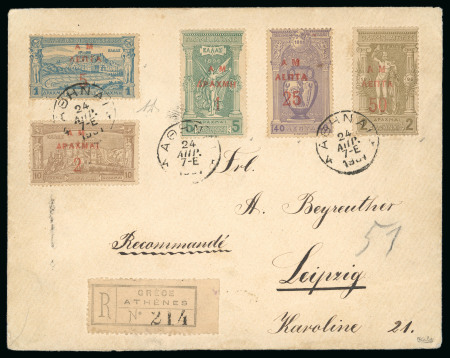 Α Μ
ΛΕΠΤΑ
5
1
1
ΕΛΛΑΣ
Α Μ
ΔΡΑΧΜΗ
1
5
Α Μ
ΛΕΠΤΑ
25
40
Α Μ
ΛΕΠΤΑ
50
2
ΔΡΑΧΜΑΙ
2
10
10
ΑΘΗΝΑΙ
24
ΑΠΡ.
7-Ε
1901
ΑΘΗΝΑΙ
24
ΑΠΡ.
7-Ε
1901
ΑΘΗΝΑΙ
24
ΑΠΡ.
7-Ε
1901
Frl.
A. Beyreuther
51
Recommandé
Leipzig
Karoline 21.
R
GRÈCE
ATHÈNES
N° 214